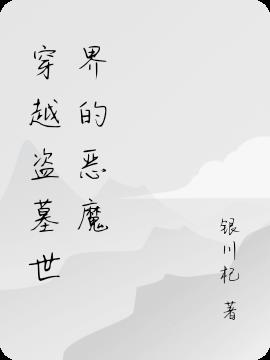 穿越盗墓世
界的恶魔
银川杞 著